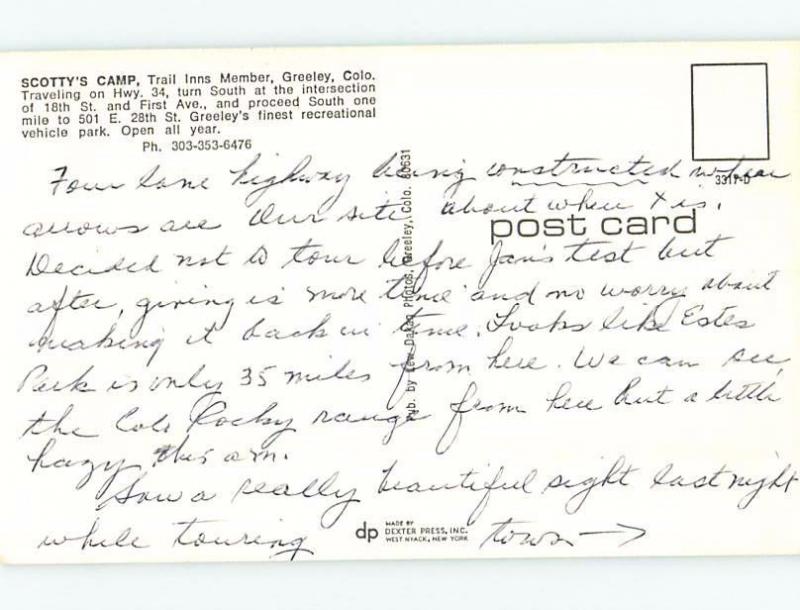 SCOTTY'S CAMP, Trail Inns Member, Greeley, Colo.
Traveling on Hwy. 34, turn South at the intersection
of 18th St. and First Ave., and proceed South one
mile to 501 E. 28th St. Greeley's finest recreational
vehicle park. Open all year.
Ph. 303-353-6476
3317-D
post card
Pub. by Lew Dakan Photos, Greeley, Colo. 80631
Four lane highway being constructed where
arrows are Our site about where X is.
Decided not to tour before Jan's test but
after, giving is more time and no worry about
making it back in time. Looks like Estes
Park is only 35 miles from here. We can see
the Colo Rocky range from here but a little
hazy this a.m.
Saw a really beautiful sight last night
while touring town →
dp MADE BY
DEXTER PRESS, INC.
WEST NYACK, NEW YORK